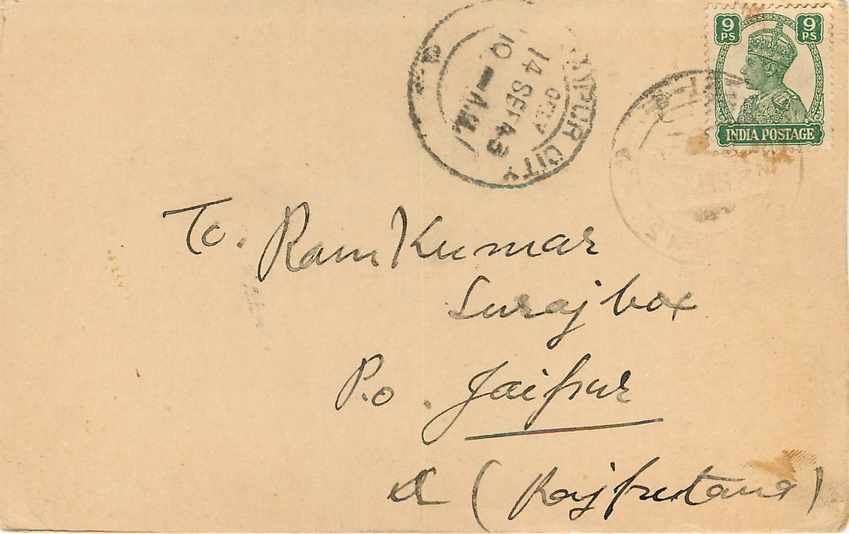 9 PS 9 PS
INDIA POSTAGE
JAIPUR CITY
14 SEP 43
10 - A.M.
To. Ram Kumar
Surajbox
P.o. Jaipur
(Rajputana)